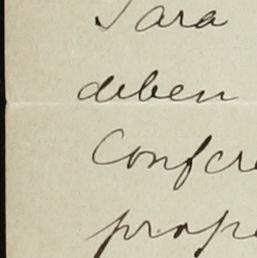 Para
deben
Confere
prope